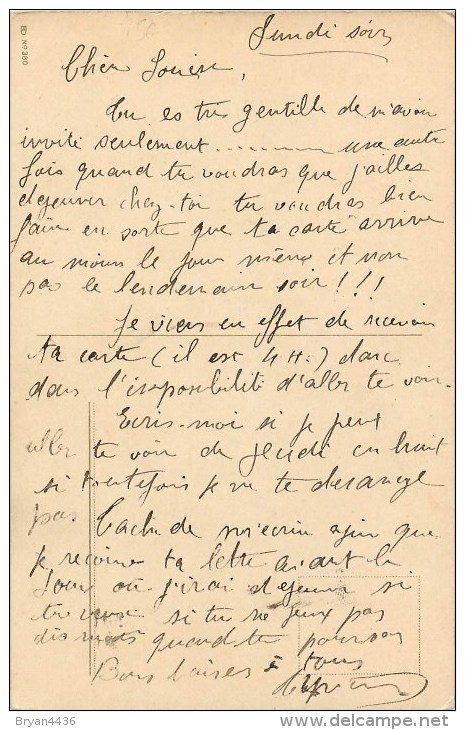 ED No 380
Lundi soir
Chère Louise,
Tu es très gentille de m'avoir
invité seulement ............ une autre
fois quand tu voudras que j'ailles
dejeuner chez-toi tu voudras bien
faire en sorte que ta carte arrive
au moins le jour même et non
pas le lendemain soir !!!
Je viens en effet de recevoir
ta carte (il est 4 H.) donc
dans l'impossibilité d'aller te voir.
Ecris-moi si je peux
aller te voir de Jeudi en huit
si toutefois je ne te derange
pas Tache de m'ecrire afin que
je reçoive ta lettre avant le
Jour où j'irai dejeuner si
tu veux si tu ne peux pas
dis moi quand tu pourras
Bons baisers à tous
Bryan4436
delcampe.net